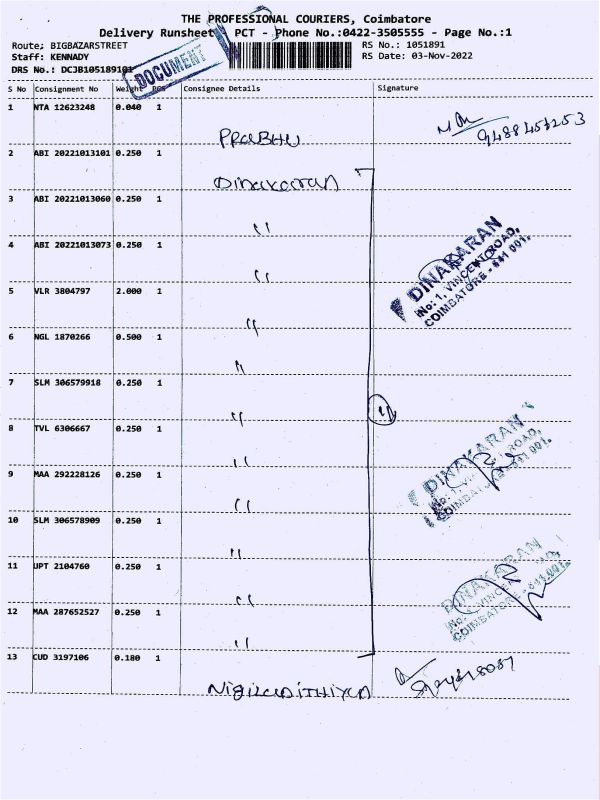 THE PROFESSIONAL COURIERS, Coimbatore
Delivery Runsheet PCT - Phone No.:0422-3505555 - Page No.:1
Route; BIGBAZARSTREET
RS No.: 1051891
Staff: KENNADY
RS Date: 03-Nov-2022
DRS No.: DCJB105189101
DOCUMENT
S No Consignment No Weight PCS Consignee Details Signature
1 NTA 12623248 0.040 1
PRaBHU
9488457253
2 ABI 20221013101 0.250 1
Dinakaran
3 ABI 20221013060 0.250 1
"
4 ABI 20221013073 0.250 1
"
DINAKARAN
No: 1, VINCENT ROAD,
COIMBATORE - 641 001.
5 VLR 3804797 2.000 1
"
6 NGL 1870266 0.500 1
"
7 SLM 306579918 0.250 1
"
"
8 TVL 6306667 0.250 1
"
DINAKARAN
No: 1, VINCENT ROAD,
COIMBATORE - 641 001.
9 MAA 292228126 0.250 1
"
10 SLM 306578909 0.250 1
"
11 UPT 2104760 0.250 1
"
DINAKARAN
No: 1, VINCENT ROAD,
COIMBATORE - 641 001.
12 MAA 287652527 0.250 1
"
13 CUD 3197106 0.180 1